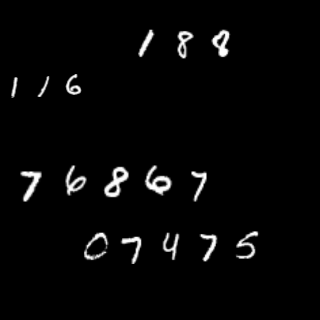 1 8 8
1 1 6
7 6 8 6 7
0 7 4 7 5